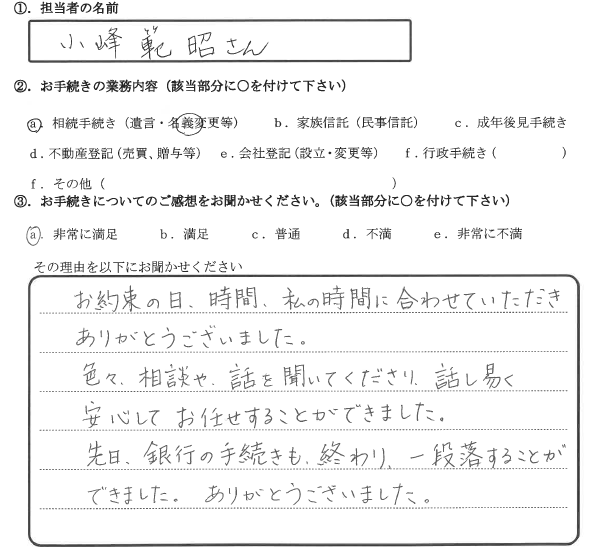 ①．担当者の名前
小峰 範昭さん
②．お手続きの業務内容（該当部分に○を付けて下さい）
a．相続手続き（遺言・名義変更等） b．家族信託（民事信託） c．成年後見手続き
d．不動産登記（売買、贈与等） e．会社登記（設立・変更等） f．行政手続き（ ）
f．その他（ ）
③．お手続きについてのご感想をお聞かせください。（該当部分に○を付けて下さい）
a．非常に満足 b．満足 c．普通 d．不満 e．非常に不満
その理由を以下にお聞かせください
お約束の日、時間、私の時間に合わせていただき
ありがとうございました。
色々、相談や、話を聞いてくださり、話し易く
安心して お任せすることができました。
先日、銀行の手続きも、終わり、一段落することが
できました。 ありがとうございました。